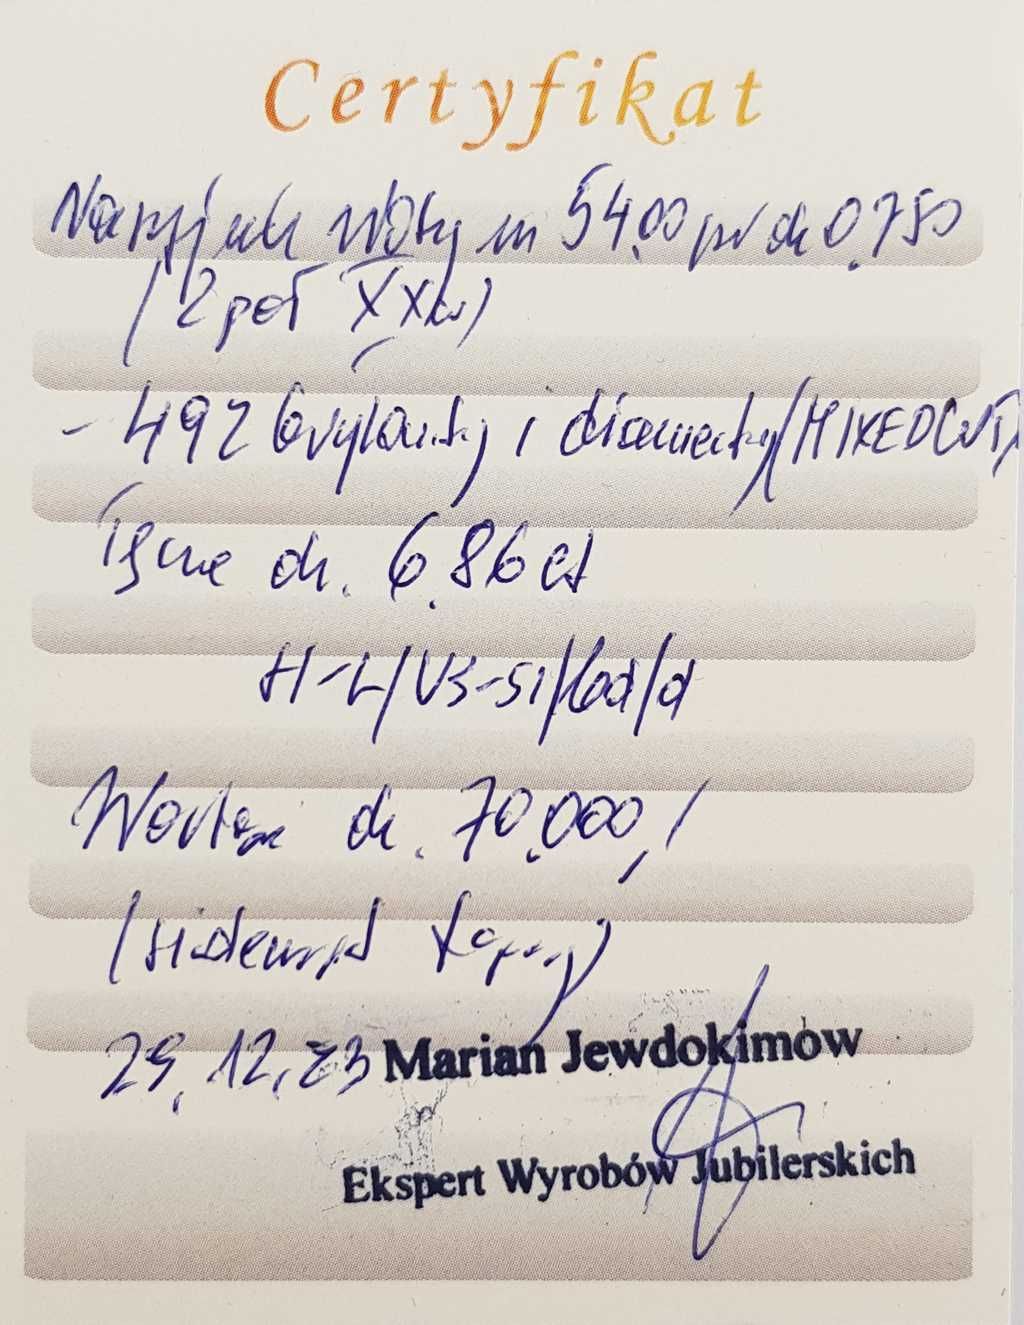 Certyfikat
Naszyjnik złoty m 54.00 pr ok 0.750
(2 poł XXw)
- 492 brylanty i diamenty (MIXED CUT)
Łącznie ok. 6.86 ct
H-L/VS-SI/
Wartość ok. 70.000,/
(siedemdziesiąt tysięcy)
29.12.23 Marian Jewdokimów
Ekspert Wyrobów Jubilerskich